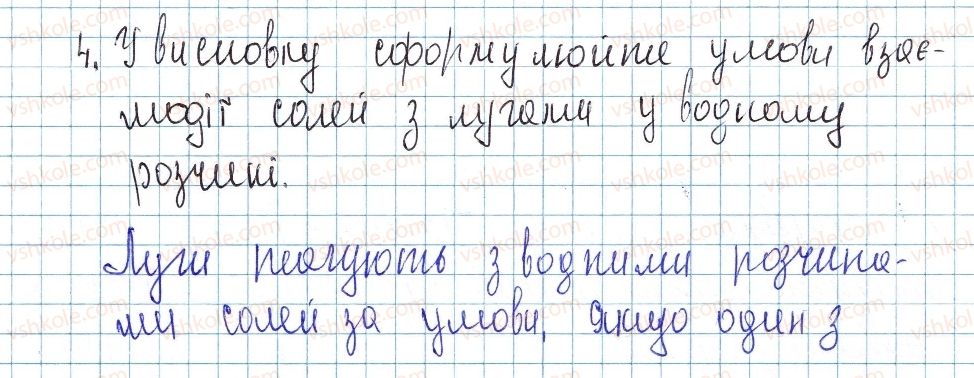 4. У висновку сформулюйте умови взає-
модії солей з лугами у водному
розчині.
Луги реагують з водними розчина-
ми солей за умови, якщо один з